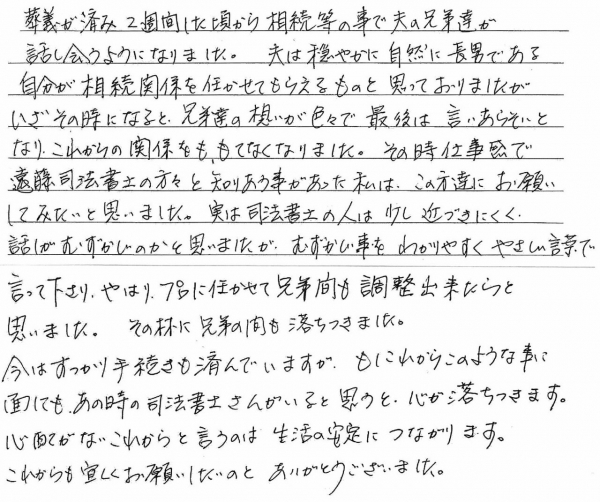 葬義が済み2週間した頃から相続等の事で夫の兄弟達が
話し会うようになりました。 夫は穏やかに自然に長男である
自分が相続関係を任かせてもらえるものと思っておりましたが
いざその時になると、兄弟達の想いが色々で最後は言いあらそいと
なり、これからの関係をも、もてなくなりました。その時仕事感で
遠藤司法書士の方々と知りあう事があった私は、この方達にお願い
してみたいと思いました。実は司法書士の人は少し近づきにくく
話しがむずかしいのかと思いましたが、むずかしい事をわかりやすくやさしい言葉で
言って下さり、やはり、プロに任かせて兄弟間も調整出来たらと
思いました。 その様に兄弟の間も落ちつきました。
今はすっかり手続きも済んでいますが、もしこれからこのような事に
面しても、あの時の司法書士さんがいると思うと、心が落ちつきます。
心配がないこれからと言うのは生活の安定につながります。
これからも宜しくお願いしたいのと ありがとうございました。